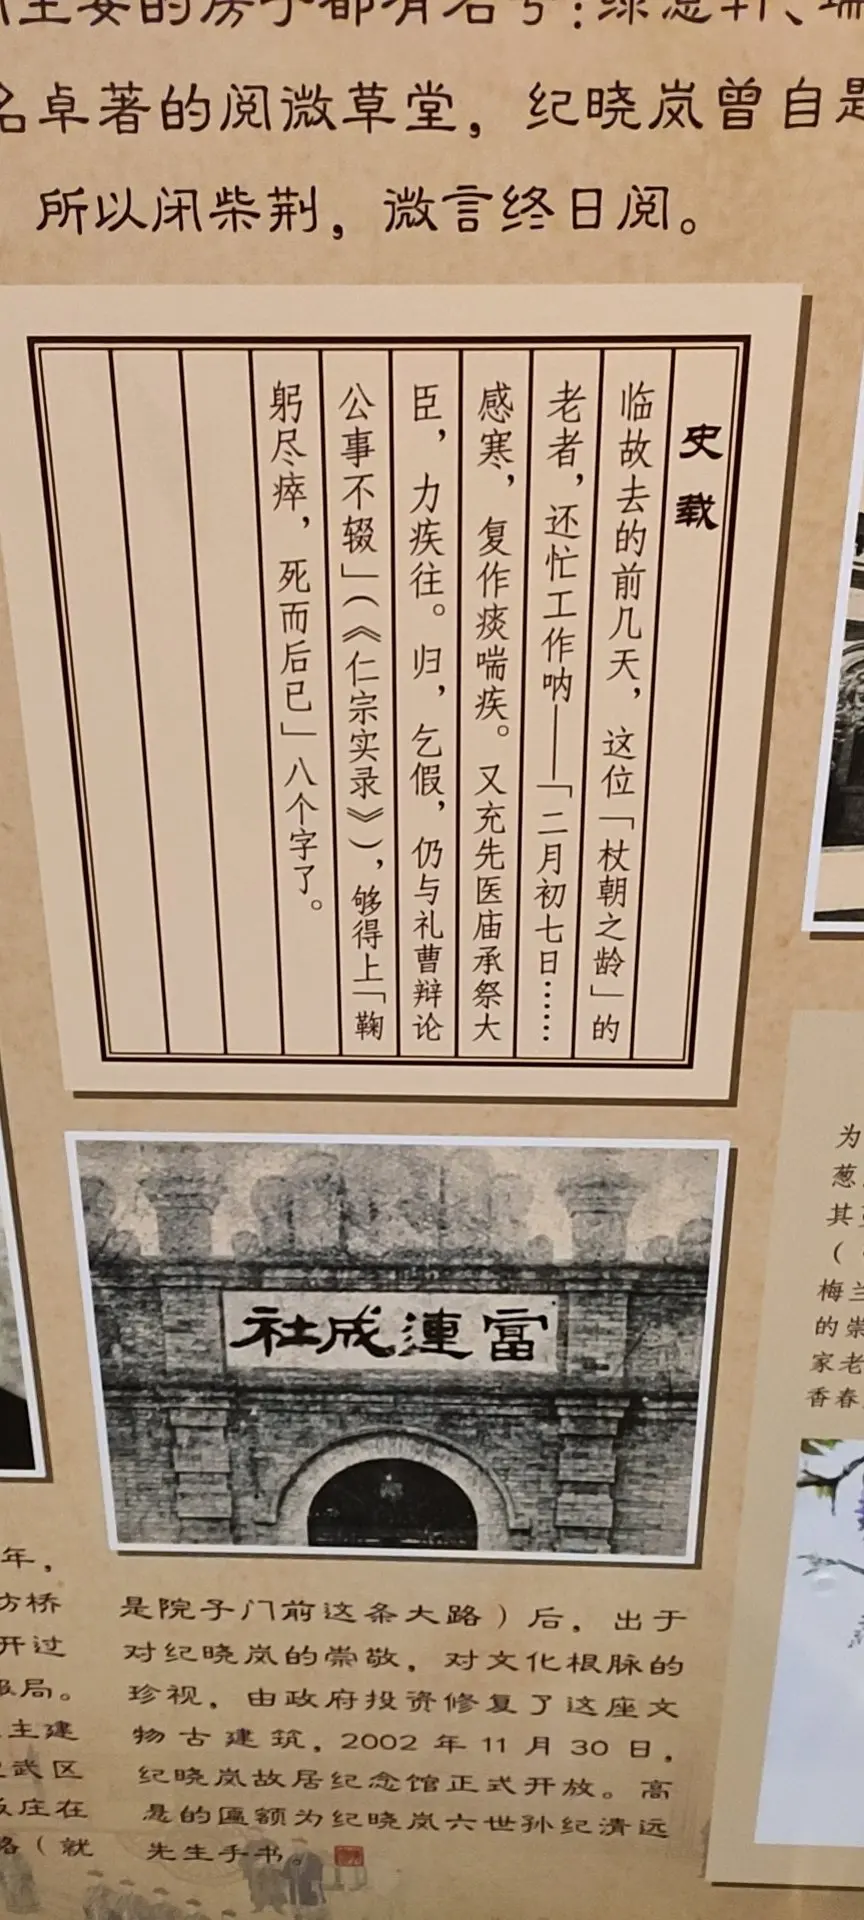 主要的房子都有名号：绿意轩、瑞
名卓著的阅微草堂，纪晓岚曾自题
所以闭柴荆，微言终日阅。
史载
临故去的前几天，这位「杖朝之龄」的
老者，还忙工作呐——「二月初七日……
感寒，复作痰喘疾。又充先医庙承祭大
臣，力疾往。归，乞假，仍与礼曹辩论
公事不辍」（《仁宗实录》），够得上「鞠
躬尽瘁，死而后已」八个字了。
富連成社
年，
方桥
开过
报局。
主建
武区
饭庄在
路（就
是院子门前这条大路）后，出于
对纪晓岚的崇敬，对文化根脉的
珍视，由政府投资修复了这座文
物古建筑，2002年11月30日，
纪晓岚故居纪念馆正式开放。高
悬的匾额为纪晓岚六世孙纪清远
先生手书。
为
葱
其
（
梅兰
的崇
家老
香春